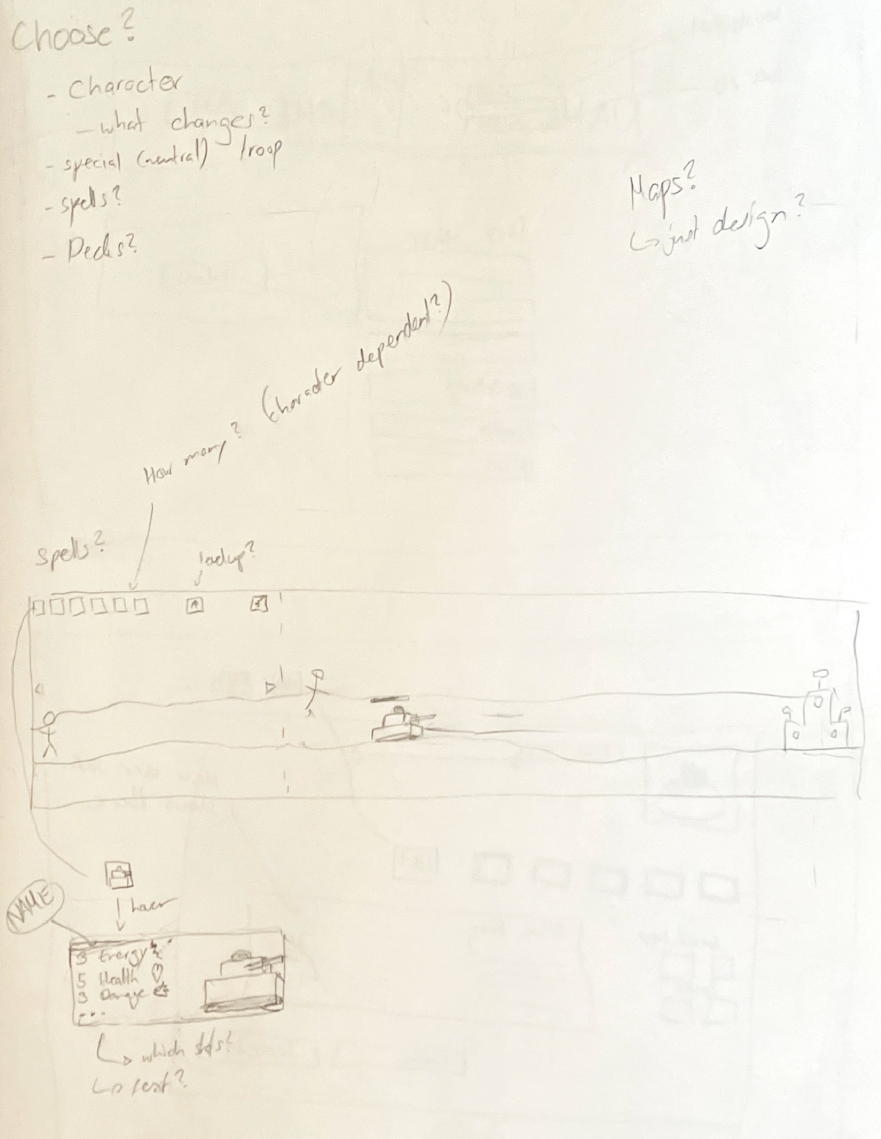 Choose?
- Character
- what changes?
- special (neutral) troop
- spells?
- Decks?
Maps?
↳ just design?
How many? (character dependent?)
spells?
NAME
3 Energy
5 Health
3 Damage
...
↳ which
↳ text?